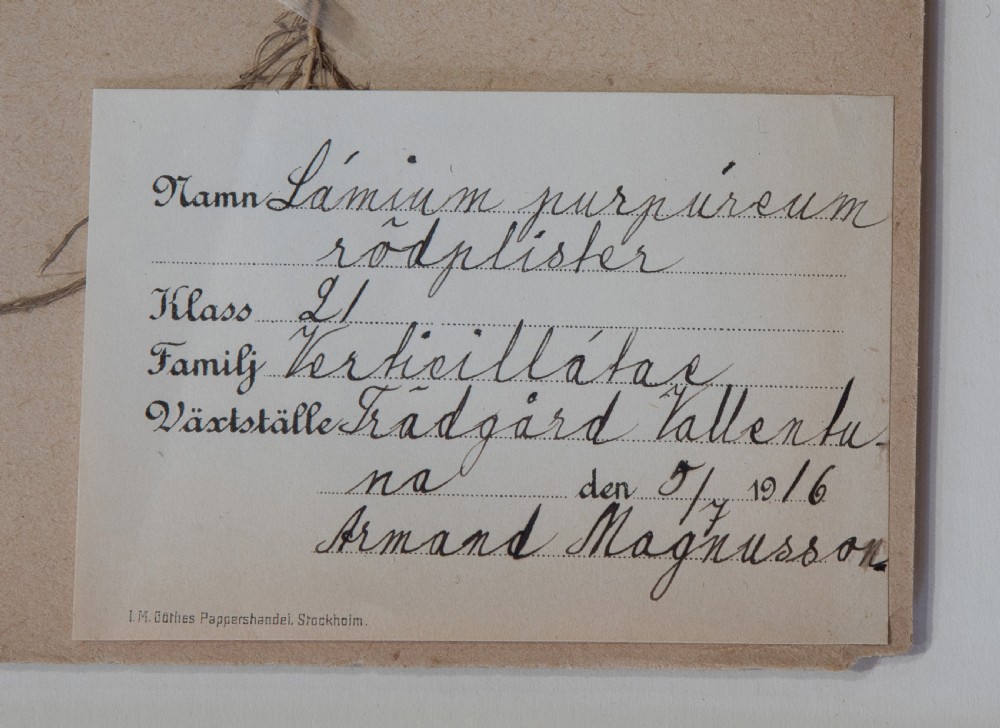 Namn Lámium purpúreum
rödplister
Klass 21
Familj Verticillátae
Växtställe Trädgård Vallentu-
na den 5/7 1916
Armand Magnusson
I. M. Göthes Pappershandel, Stockholm.